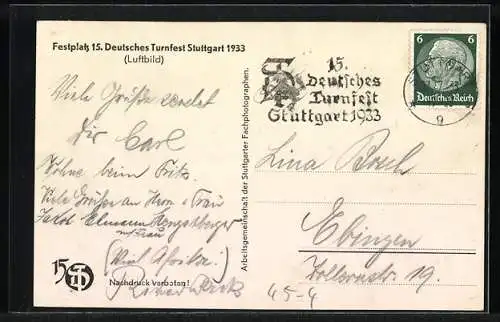 Festplatz 15. Deutsches Turnfest Stuttgart 1933
(Luftbild)
Viele Grüße sendet
Dir Carl
Wohne beim Fritz.
Viele Grüße an Herrn + Frau
Jakob
Nachdruck verboten!
15
Arbeitsgemeinschaft der Stuttgarter Fachphotographen.
15.
Deutsches
Turnfest
Stuttgart 1933
6 6
Deutsches Reich
9
Lina
Ebingen
Zollernstr. 19.
45-4